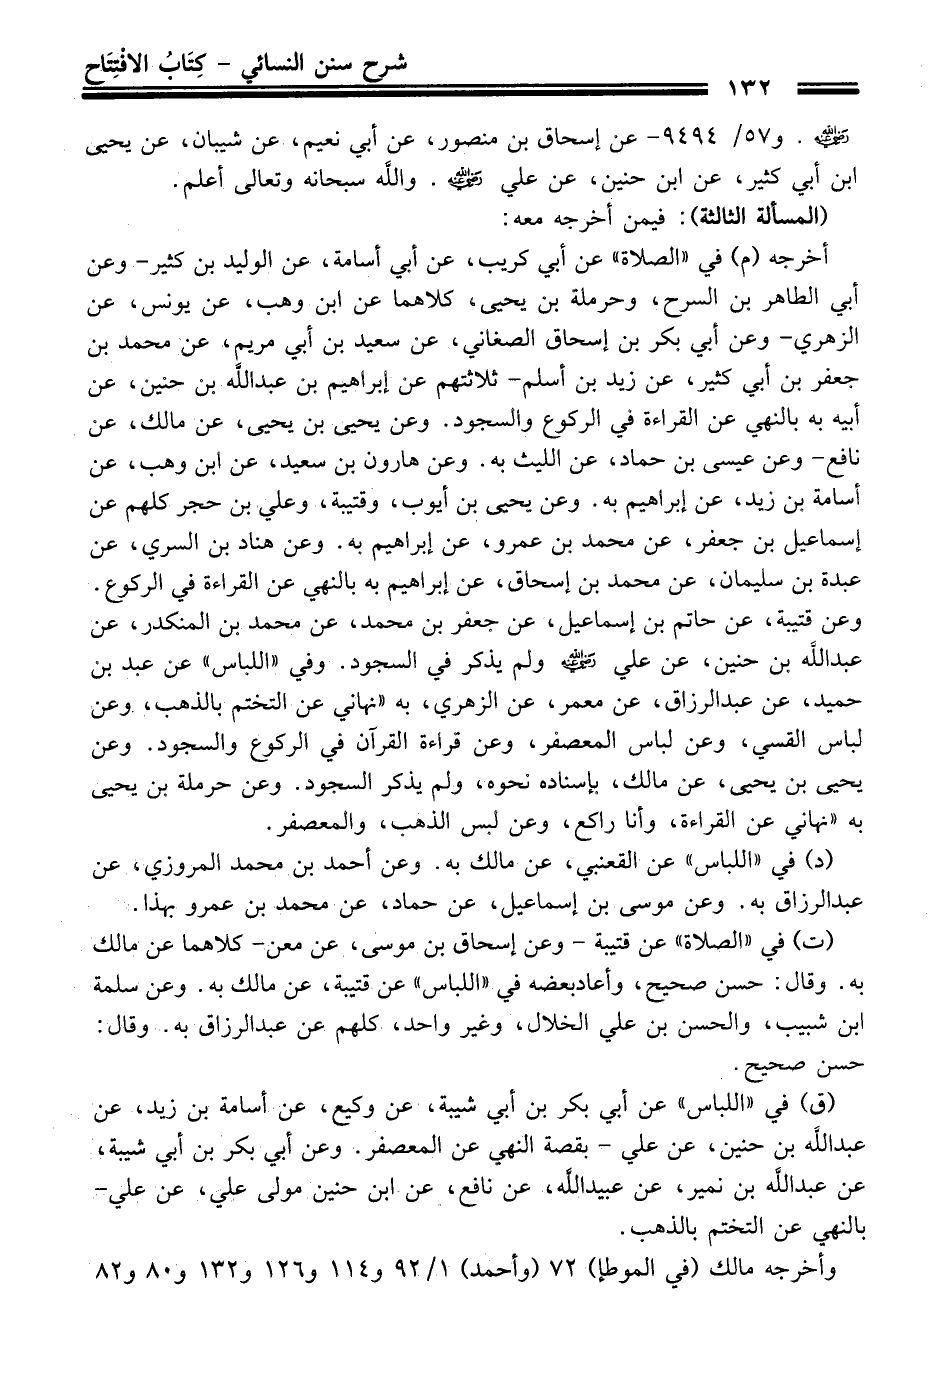 شرح سنن النسائي - كِتَابُ الافْتِتَاح
١٣٢
رضي الله عنه . و٥٧/ ٩٤٩٤- عن إسحاق بن منصور، عن أبي نعيم، عن شيبان، عن يحيى
ابن أبي كثير، عن ابن حنين، عن علي رضي الله عنه . واللَّه سبحانه وتعالى أعلم.
(المسألة الثالثة): فيمن أخرجه معه:
أخرجه (م) في «الصلاة» عن أبي كريب، عن أبي أسامة، عن الوليد بن كثير- وعن
أبي الطاهر بن السرح، وحرملة بن يحيى، كلاهما عن ابن وهب، عن يونس، عن
الزهري- وعن أبي بكر بن إسحاق الصغاني، عن سعيد بن أبي مريم، عن محمد بن
جعفر بن أبي كثير، عن زيد بن أسلم- ثلاثتهم عن إبراهيم بن عبداللَّه بن حنين، عن
أبيه به بالنهي عن القراءة في الركوع والسجود. وعن يحيى بن يحيى، عن مالك، عن
نافع- وعن عيسى بن حماد، عن الليث به. وعن هارون بن سعيد، عن ابن وهب، عن
أسامة بن زيد، عن إبراهيم به. وعن يحيى بن أيوب، وقتيبة، وعلي بن حجر كلهم عن
إسماعيل بن جعفر، عن محمد بن عمرو، عن إبراهيم به. وعن هناد بن السري، عن
عبدة بن سليمان، عن محمد بن إسحاق، عن إبراهيم به بالنهي عن القراءة في الركوع.
وعن قتيبة، عن حاتم بن إسماعيل، عن جعفر بن محمد، عن محمد بن المنكدر، عن
عبداللَّه بن حنين، عن علي رضي الله عنه ولم يذكر في السجود. وفي «اللباس» عن عبد بن
حميد، عن عبدالرزاق، عن معمر، عن الزهري، به «نهاني عن التختم بالذهب، وعن
لباس القسي، وعن لباس المعصفر، وعن قراءة القرآن في الركوع والسجود. وعن
يحيى بن يحيى، عن مالك، بإسناده نحوه، ولم يذكر السجود. وعن حرملة بن يحيى
به «نهاني عن القراءة، وأنا راكع، وعن لبس الذهب، والمعصفر.
(د) في «اللباس» عن القعنبي، عن مالك به. وعن أحمد بن محمد المروزي، عن
عبدالرزاق به. وعن موسى بن إسماعيل، عن حماد، عن محمد بن عمرو بهذا.
(ت) في «الصلاة» عن قتيبة - وعن إسحاق بن موسى، عن معن- كلاهما عن مالك
به. وقال: حسن صحيح، وأعادبعضه في «اللباس» عن قتيبة، عن مالك به. وعن سلمة
ابن شبيب، والحسن بن علي الخلال، وغير واحد، كلهم عن عبدالرزاق به. وقال:
حسن صحيح.
(ق) في «اللباس» عن أبي بكر بن أبي شيبة، عن وكيع، عن أسامة بن زيد، عن
عبداللَّه بن حنين، عن علي - بقصة النهي عن المعصفر. وعن أبي بكر بن أبي شيبة،
عن عبداللَّه بن نمير، عن عبيداللَّه، عن نافع، عن ابن حنين مولى علي، عن علي-
بالنهي عن التختم بالذهب.
وأخرجه مالك (في الموطإ) ٧٢ (وأحمد) ١/ ٩٢ و١١٤ و١٢٦ و١٣٢ و٨٠ و٨٢